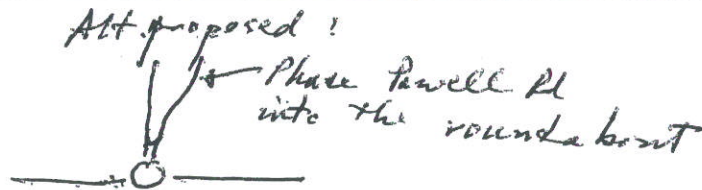 Alt. proposed :
Phase Powell Rd
into the roundabout